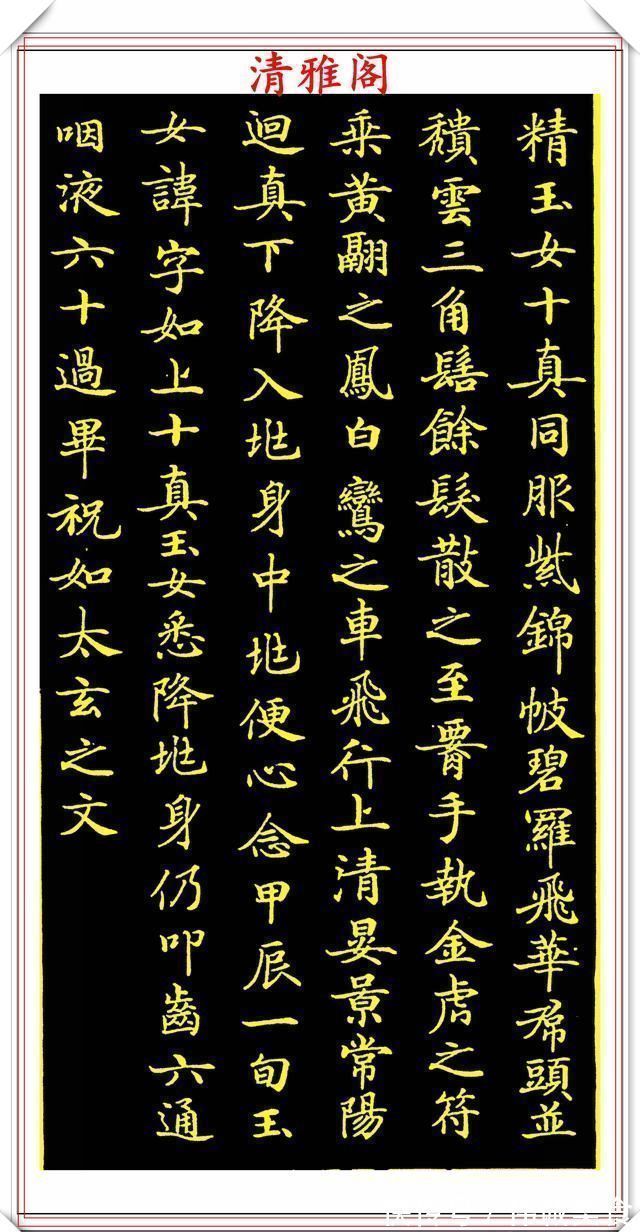 清雅阁
精玉女十真同服紫錦帔碧羅飛華帬頭並
頹雲三角髻餘髮散之至署手執金虎之符
乘黃翮之鳳白鸞之車飛行上清晏景常陽
迴真下降入坔身中坔便心念甲辰一旬玉
女諱字如上十真玉女悉降坔身仍叩齒六通
咽液六十過畢祝如太玄之文